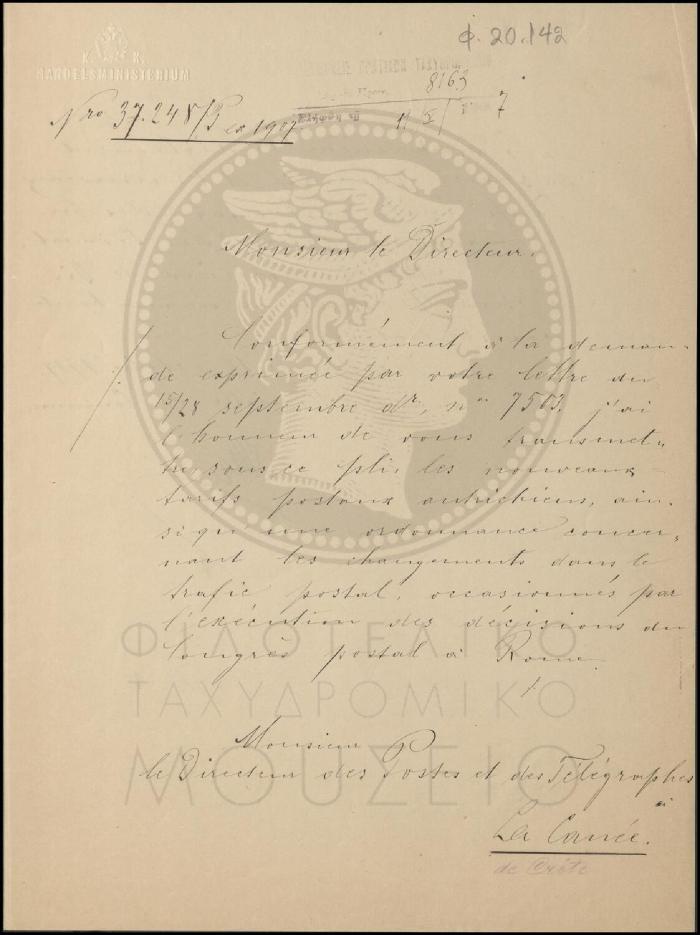 Φ. 20.142
K. K.
HANDELSMINISTERIUM
8163
Nro 37.248/P ex 1907
11 X 7
Monsieur le Directeur.
Conformément à la deman-
de exprimée par votre lettre du
15/28 septembre dr, no 7503, j'ai
l'honneur de vous transmet-
tre, sous ce pli, les nouveaux
tarifs postaux autrichiens, ain-
si qu'une ordonnance concer-
nant les changements dans le
trafic postal, occasionnés par
l'exécution des décisions du
Congrès postal à Rome.
ΦΙΛΟΤΕΛΙΚΟ
ΤΑΧΥΔΡΟΜΙΚΟ
ΜΟΥΣΕΙΟ
Monsieur
le Directeur des Postes et des Télégraphes
à
La Canée.
de Crète